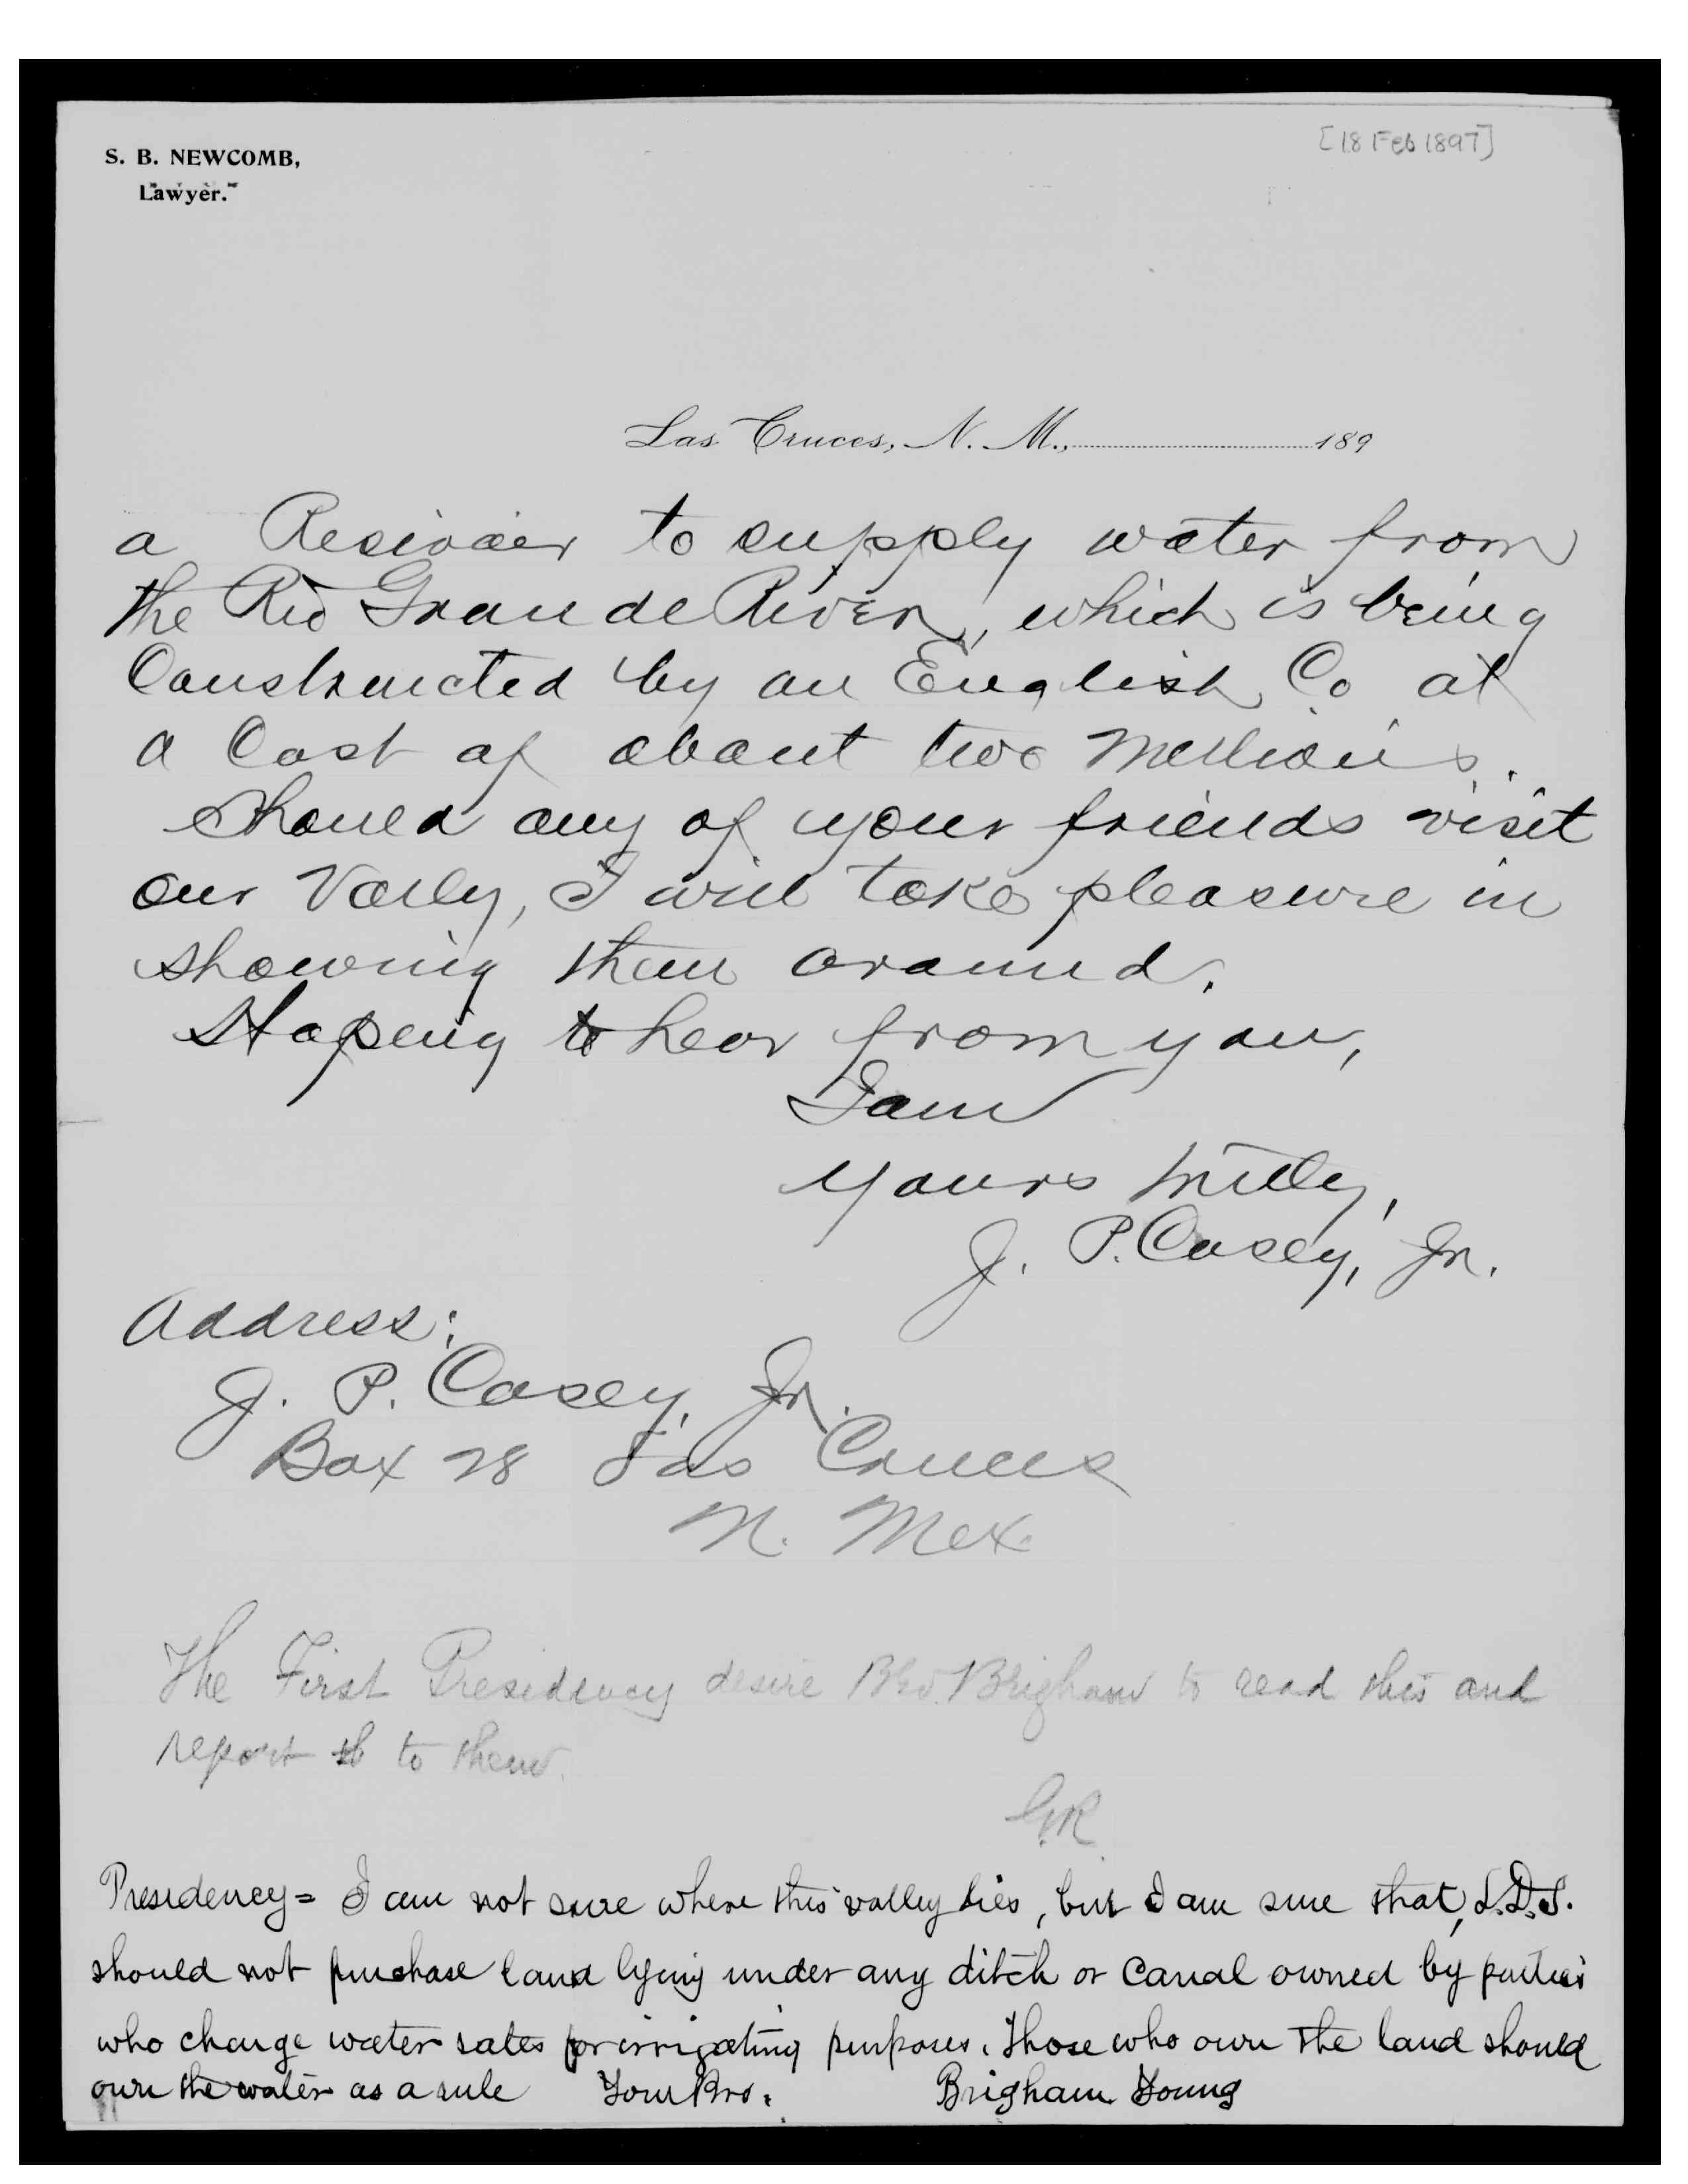 [18 Feb 1897]
S. B. NEWCOMB,
Lawyer.
Las Cruces, N. M., 189
a Resivoier to supply water from
the Rio Grande River, which is being
Constructed by an English Co at
a Cost of about two Millions.
Should any of your friends visit
our Vally, I will take pleasure in
showing them around.
Hopeing to hear from you,
I am
Yours truly,
J. P. Casey, Jr.
Address:
J. P. Casey, Jr.
Box 28 Las Cruces
N. Mex.
The First Presidency desire Bro. Brigham to read this and
report to them.
G.R.
Presidency = I am not sure where this valley lies, but I am sure that, L.D.S.
should not purchase land lying under any ditch or canal owned by parties
who charge water rates for irrigating purposes. Those who own the land should
own the water as a rule Your Bro. Brigham Young